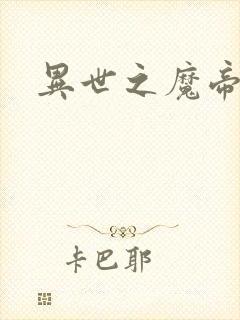 異世之魔帝
卡巴耶